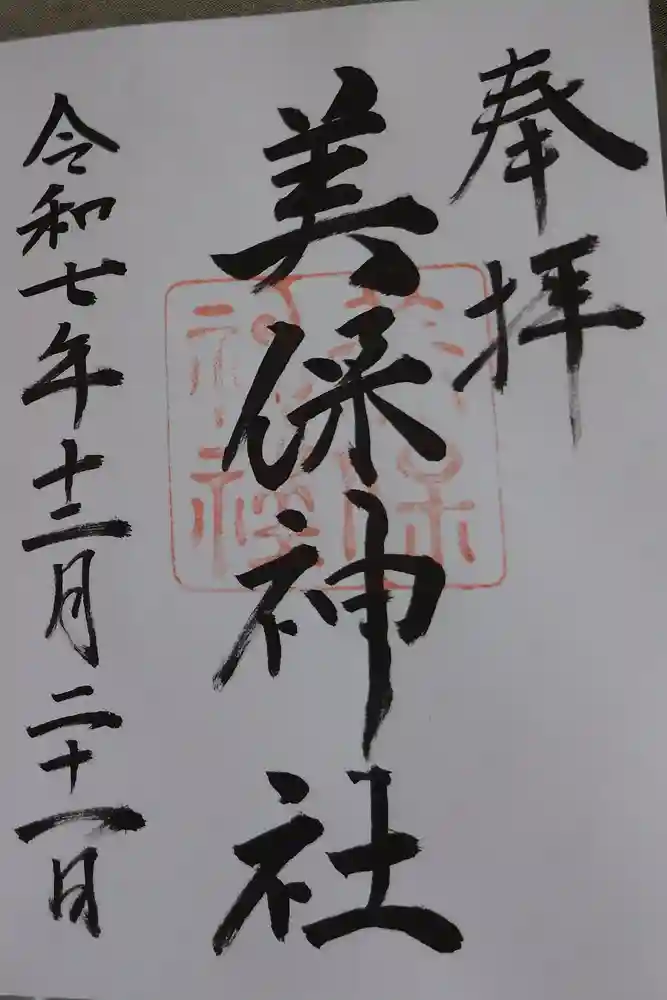 奉拝
美保神社
令和七年十二月二十一日
美保
神社